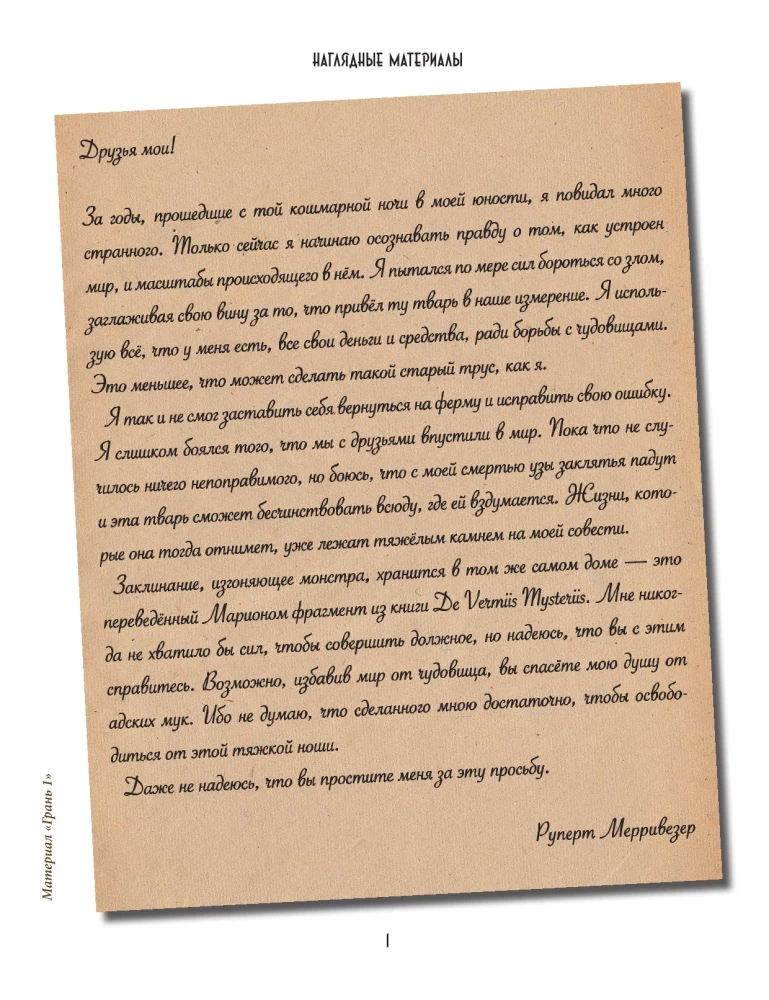 НАГЛЯДНЫЕ МАТЕРИАЛЫ
Друзья мои!
За годы, прошедшие с той кошмарной ночи в моей юности, я повидал много
странного. Только сейчас я начинаю осознавать правду о том, как устроен
мир, и масштабы происходящего в нём. Я пытался по мере сил бороться со злом,
заглаживая свою вину за то, что привёл ту тварь в наше измерение. Я исполь-
зую всё, что у меня есть, все свои деньги и средства, ради борьбы с чудовищами.
Это меньшее, что может сделать такой старый трус, как я.
Я так и не смог заставить себя вернуться на ферму и исправить свою ошибку.
Я слишком боялся того, что мы с друзьями впустили в мир. Пока что не слу-
чилось ничего непоправимого, но боюсь, что с моей смертью узы заклятья падут
и эта тварь сможет бесчинствовать всюду, где ей вздумается. Жизни, кото-
рые она тогда отнимет, уже лежат тяжёлым камнем на моей совести.
Заклинание, изгоняющее монстра, хранится в том же самом доме — это
переведённый Марионом фрагмент из книги De Vermiis Mysteriis. Мне никог-
да не хватило бы сил, чтобы совершить должное, но надеюсь, что вы с этим
справитесь. Возможно, избавив мир от чудовища, вы спасёте мою душу от
адских мук. Ибо не думаю, что сделанного мною достаточно, чтобы освобо-
диться от этой тяжкой ноши.
Даже не надеюсь, что вы простите меня за эту просьбу.
Руперт Мерривезер
Материал «Грань 1»
1